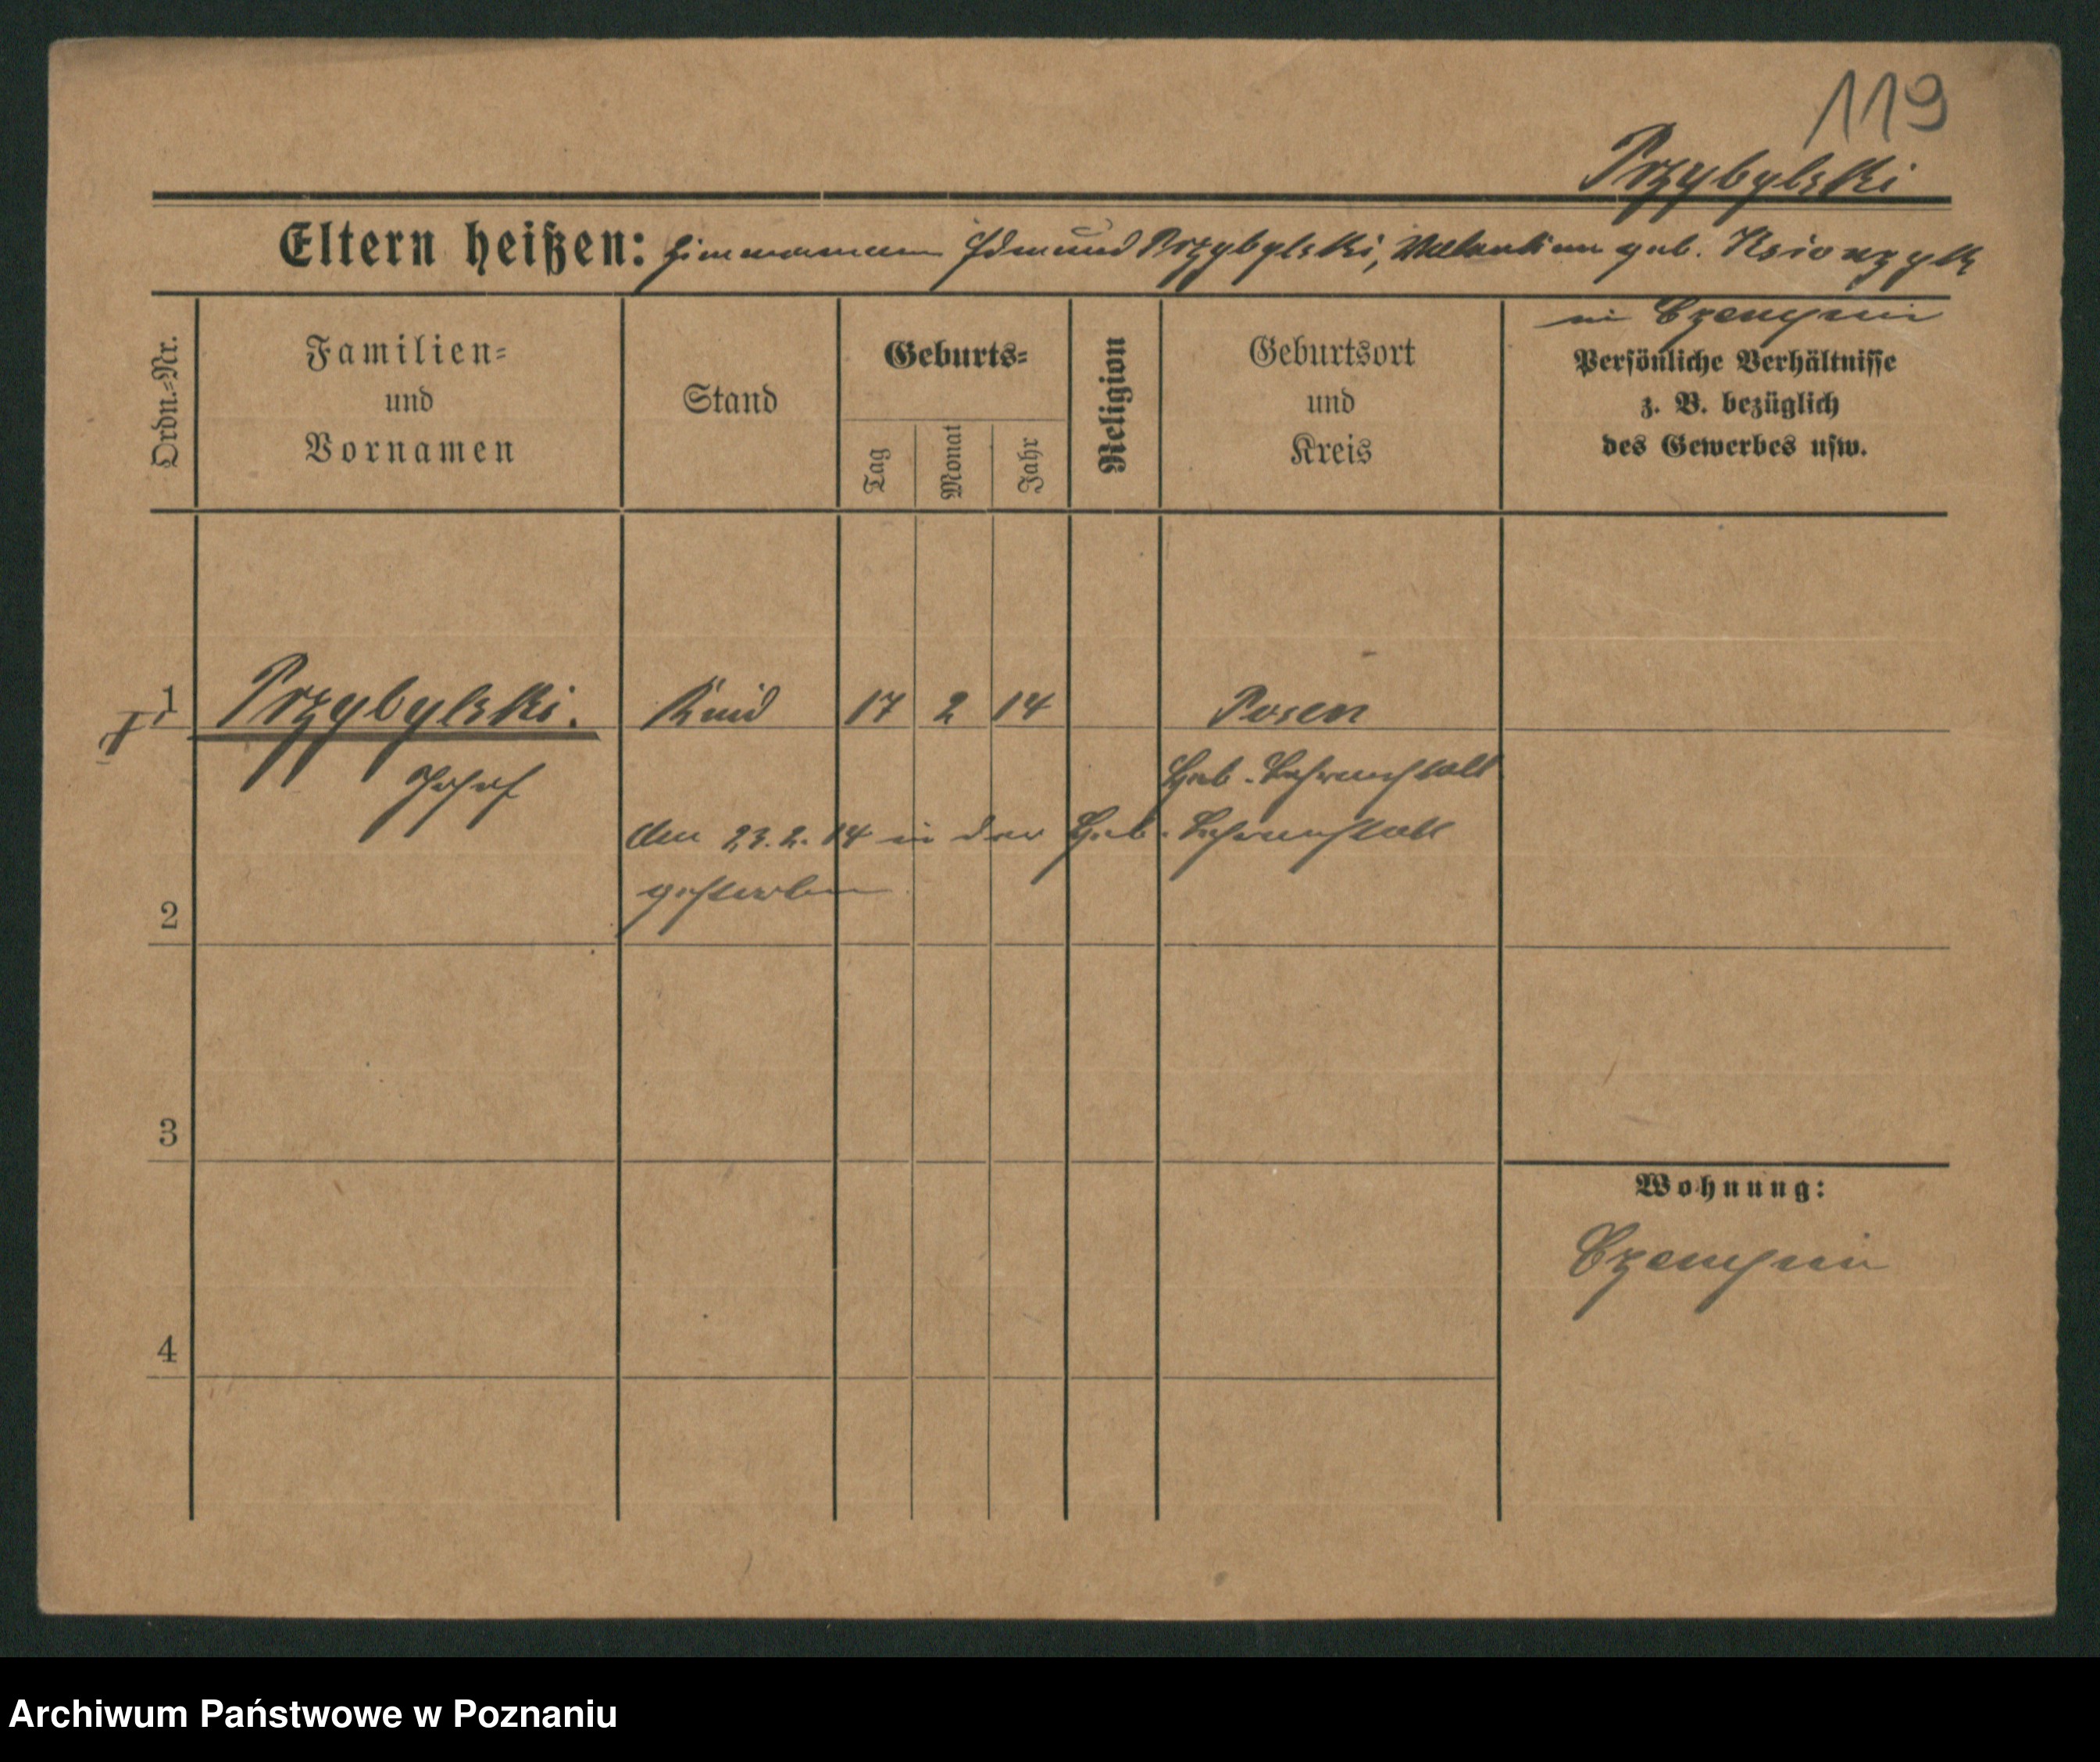 119
Przybylski
Eltern heißen: Zimmermann Edmund Przybylski, Valentine geb. Ksionzyk
in Czempin
Ordn.-Nr.
Familien-
und
Vornamen
Stand
Geburts-
Tag
Monat
Jahr
Religion
Geburtsort
und
Kreis
Persönliche Verhältnisse
z. B. bezüglich
des Gewerbes usw.
1 Przybylski. Kind 17 2 14 Posen
Josef
Heb. Lehranstalt
den 23.2.14 in der Heb. Lehranstalt
gestorben
2
3
4
Wohnung:
Czempin
Archiwum Państwowe w Poznaniu